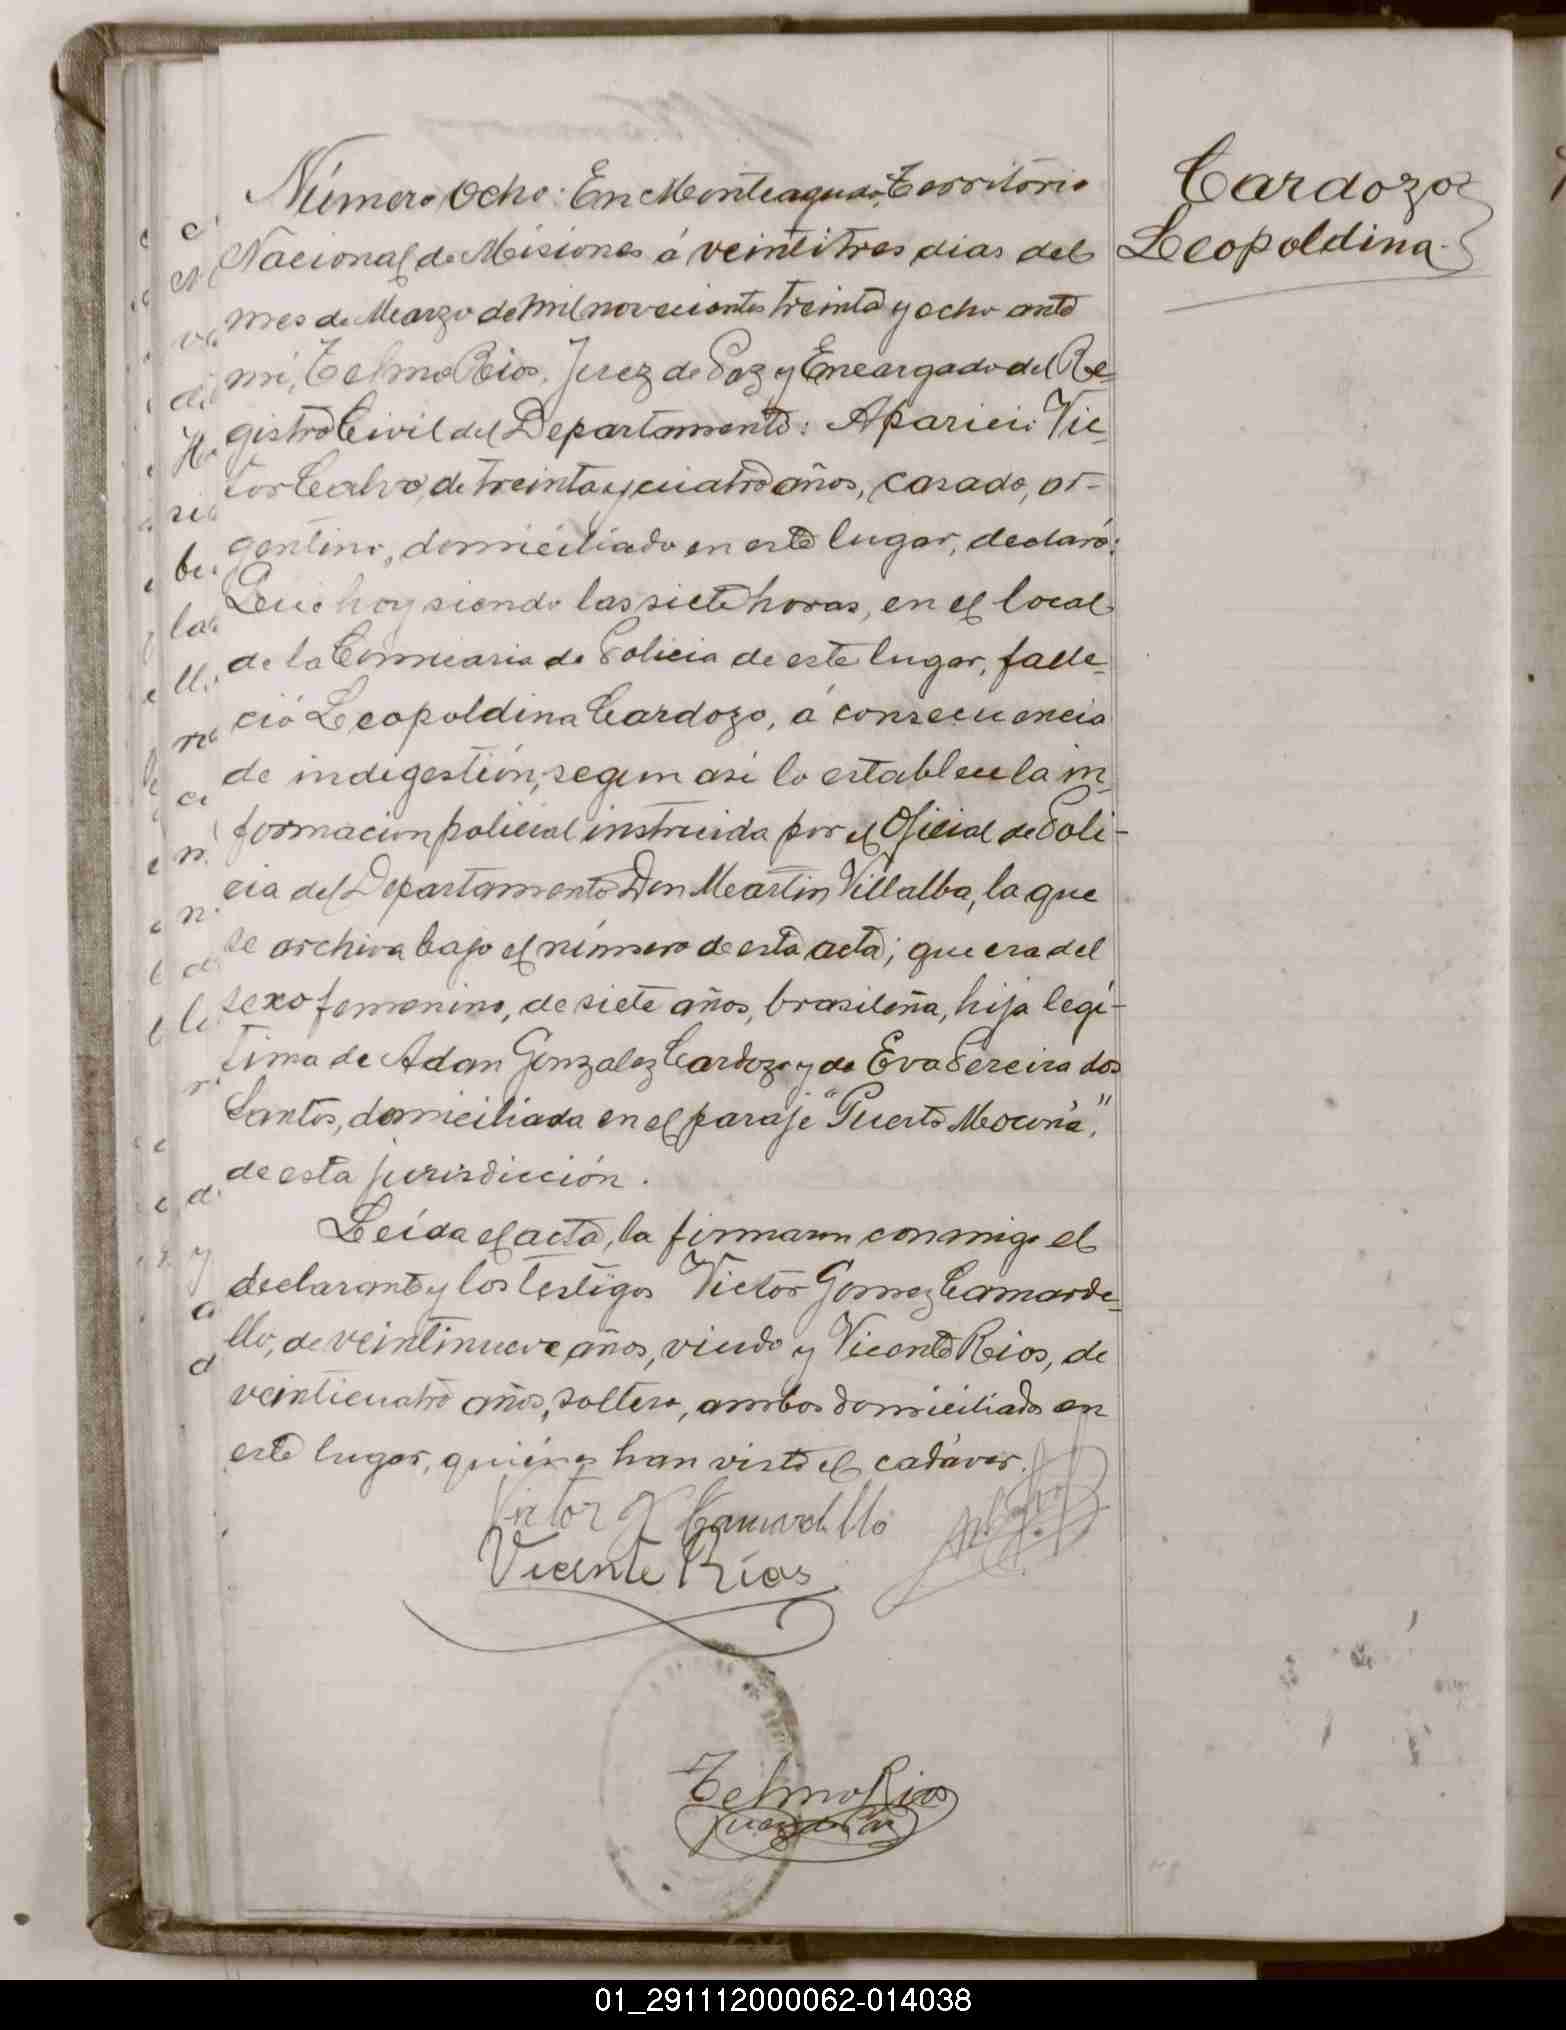 Cardozo
Leopoldina.
Número Ocho: En Monteagudo, Territorio
Nacional de Misiones á veintitres dias del
mes de Marzo de mil novecientos treinta y ocho ante
mi, Telmo Rios, Juez de Paz y Encargado del Re-
gistro Civil del Departamento: Aparicio Vic-
tor Calvo, de treinta y cuatro años, casado, ar-
gentino, domiciliado en este lugar, declaró:
Que hoy siendo las siete horas, en el local
de la Comisaria de Policia de este lugar, falle-
ció Leopoldina Cardozo, á consecuencia
de indigestión, segun asi lo establece la in-
formacion policial instruida por el Oficial de Poli-
cia del Departamento Don Martin Villalba, la que
se archiva bajo el número de esta acta; que era del
sexo femenino, de siete años, brasileña, hija legí-
tima de Adan Gonzalez Cardozo y de Eva Pereira dos
Santos, domiciliada en el paraje "Puerto Mocona",
de esta jurisdicción.
Leída el acta, la firmaron conmigo el
declarante y los testigos Victor Gomez Camarde-
llo, de veintinueve años, viudo y Vicente Rios, de
veinticuatro años, soltero, ambos domiciliados en
este lugar, quiénes han visto el cadáver.
Victor G Camardello
Vicente Ríos
Telmo Rios
Juez de Paz
01_291112000062-014038